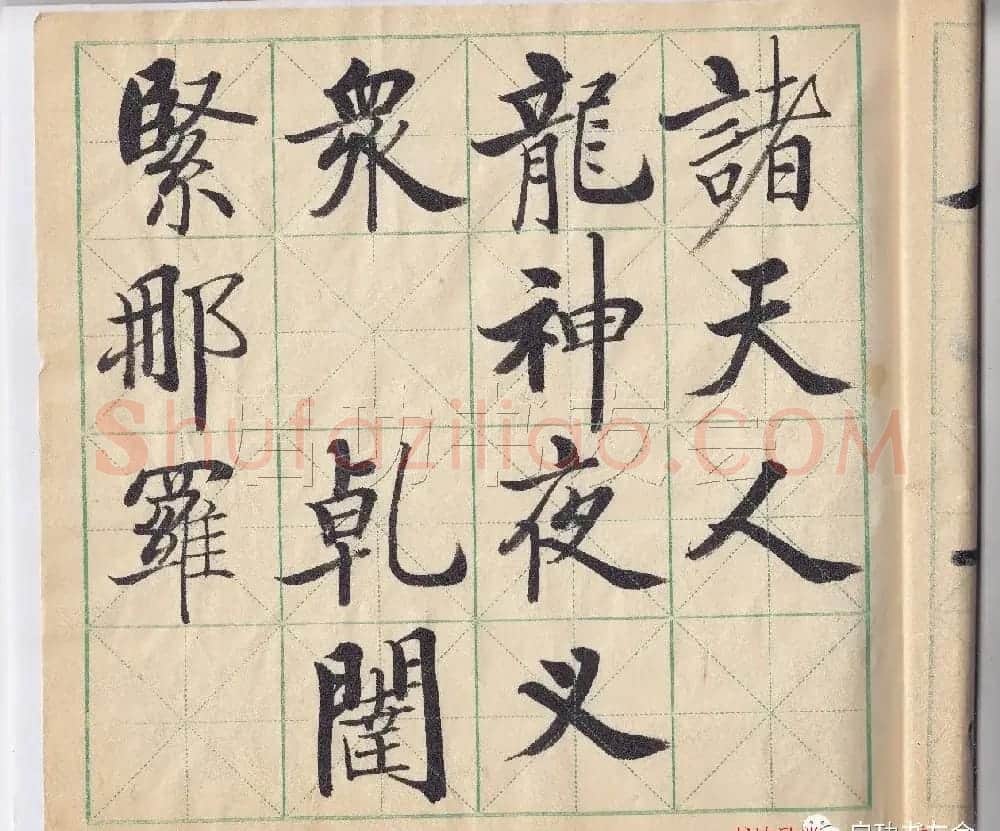 諸天人
龍神夜叉
衆 乹闥
緊那羅
Shufaziliao.COM